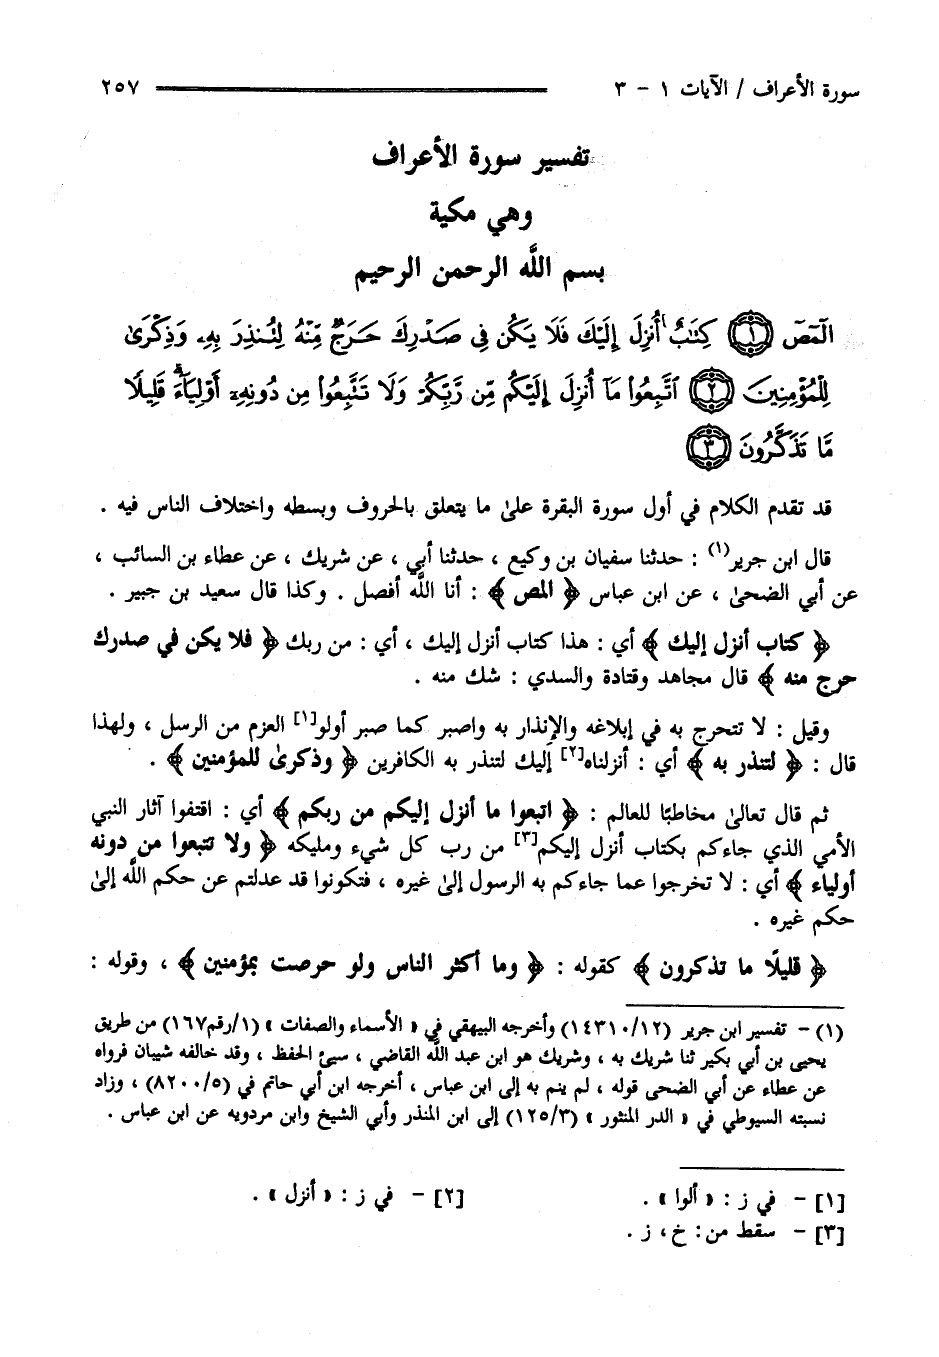 سورة الأعراف / الآيات ١ - ٣ ٢٥٧
تفسير سورة الأعراف
وهي مكية
بسم اللَّه الرحمن الرحيم
الٓمٓصٓ ١ كِتَٰبٌ أُنزِلَ إِلَيْكَ فَلَا يَكُن فِى صَدْرِكَ حَرَجٌ مِّنْهُ لِتُنذِرَ بِهِۦ وَذِكْرَىٰ
لِلْمُؤْمِنِينَ ٢ ٱتَّبِعُوا۟ مَآ أُنزِلَ إِلَيْكُم مِّن رَّبِّكُمْ وَلَا تَتَّبِعُوا۟ مِن دُونِهِۦٓ أَوْلِيَآءَ ۗ قَلِيلًا
مَّا تَذَكَّرُونَ ٣
قد تقدم الكلام في أول سورة البقرة علىٰ ما يتعلق بالحروف وبسطه واختلاف الناس فيه .
قال ابن جرير(١) : حدثنا سفيان بن وكيع ، حدثنا أبي ، عن شريك ، عن عطاء بن السائب ،
عن أبي الضحىٰ ، عن ابن عباس ﴿ الٓمٓص ﴾ : أنا اللَّه أفصل . وكذا قال سعيد بن جبير .
﴿ كتاب أنزل إليك ﴾ أي : هذا كتاب أنزل إليك ، أي : من ربك ﴿ فلا يكن في صدرك
حرج منه ﴾ قال مجاهد وقتادة والسدي : شك منه .
وقيل : لا تتحرج به في إبلاغه والإنذار به واصبر كما صبر أولو[١] العزم من الرسل ، ولهذا
قال : ﴿ لتنذر به ﴾ أي : أنزلناه[٢] إليك لتنذر به الكافرين ﴿ وذكرىٰ للمؤمنين ﴾ .
ثم قال تعالىٰ مخاطبًا للعالم : ﴿ اتبعوا ما أنزل إليكم من ربكم ﴾ أي : اقتفوا آثار النبي
الأمي الذي جاءكم بكتاب أنزل إليكم[٣] من رب كل شيء ومليكه ﴿ ولا تتبعوا من دونه
أولياء ﴾ أي : لا تخرجوا عما جاءكم به الرسول إلىٰ غيره ، فتكونوا قد عدلتم عن حكم اللَّه إلىٰ
حكم غيره .
﴿ قليلًا ما تذكرون ﴾ كقوله : ﴿ وما أكثر الناس ولو حرصت بمؤمنين ﴾ ، وقوله :
(١) - تفسير ابن جرير (١٤٣١٠/١٢) وأخرجه البيهقي في « الأسماء والصفات » (١/رقم١٦٧) من طريق
يحيى بن أبي بكير ثنا شريك به ، وشريك هو ابن عبد اللَّه القاضي ، سيئ الحفظ ، وقد خالفه شيبان فرواه
عن عطاء عن أبي الضحى قوله ، لم ينم به إلى ابن عباس ، أخرجه ابن أبي حاتم في (٨٢٠٠/٥) ، وزاد
نسبته السيوطي في « الدر المنثور » (١٢٥/٣) إلى ابن المنذر وأبي الشيخ وابن مردويه عن ابن عباس .
[١] - في ز : « ألوا » . [٢] - في ز : « أنزل » .
[٣] - سقط من : خ ، ز .